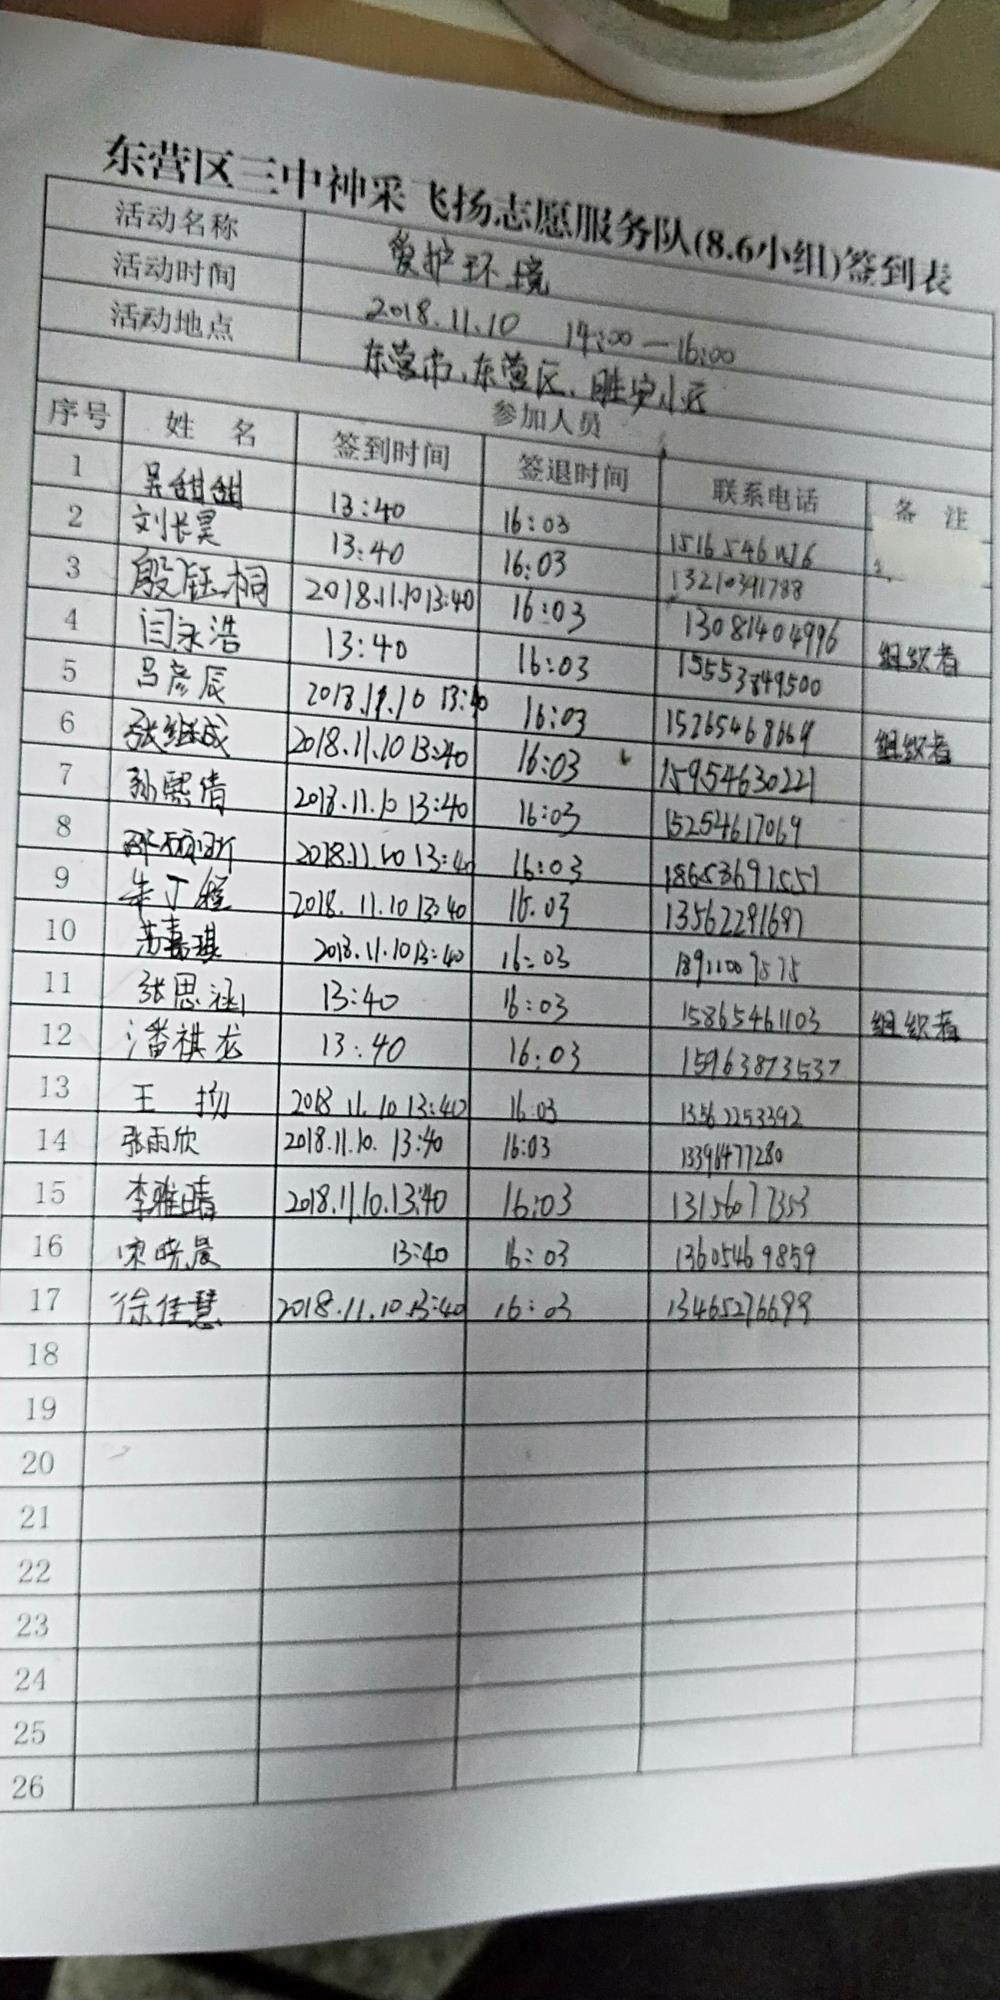 东营区三中神采飞扬志愿服务队(8.6小组)签到表
活动名称 爱护环境
活动时间 2018.11.10 14:00—16:00
活动地点 东营市、东营区、胜安小区
参加人员
序号 姓名 签到时间 签退时间 联系电话 备注
1 吴甜甜 13:40 16:03
2 刘长昊 13:40 16:03 13210391788
3 殷钰桐 2018.11.10 13:40 16:03 13081404996 组织者
4 闫永浩 13:40 16:03 15553849500
5 吕彦辰 2018.11.10 13:40 16:03 15265468669 组织者
6 张继成 2018.11.10 13:40 16:03 15954630221
7 孙熙倩 2018.11.10 13:40 16:03 15254617069
8 2018.11.10 13:40 16:03 18653691551
9 朱丁程 2018.11.10 13:40 16.03 13562291697
10 苏嘉琪 2018.11.10 13:40 16:03 18911009575
11 张思涵 13:40 16:03 15865461103 组织者
12 潘祺龙 13:40 16:03 15963873537
13 王扬 2018 11.10 13:40 16:03 13562253392
14 张雨欣 2018.11.10. 13:40 16:03 13396477280
15 李雅晴 2018.11.10.13:40 16:03 13156077353
16 宋晓晨 13:40 16:03 13605469859
17 徐佳慧 2018.11.10.13:40 16:03 13465276699
18
19
20
21
22
23
24
25
26